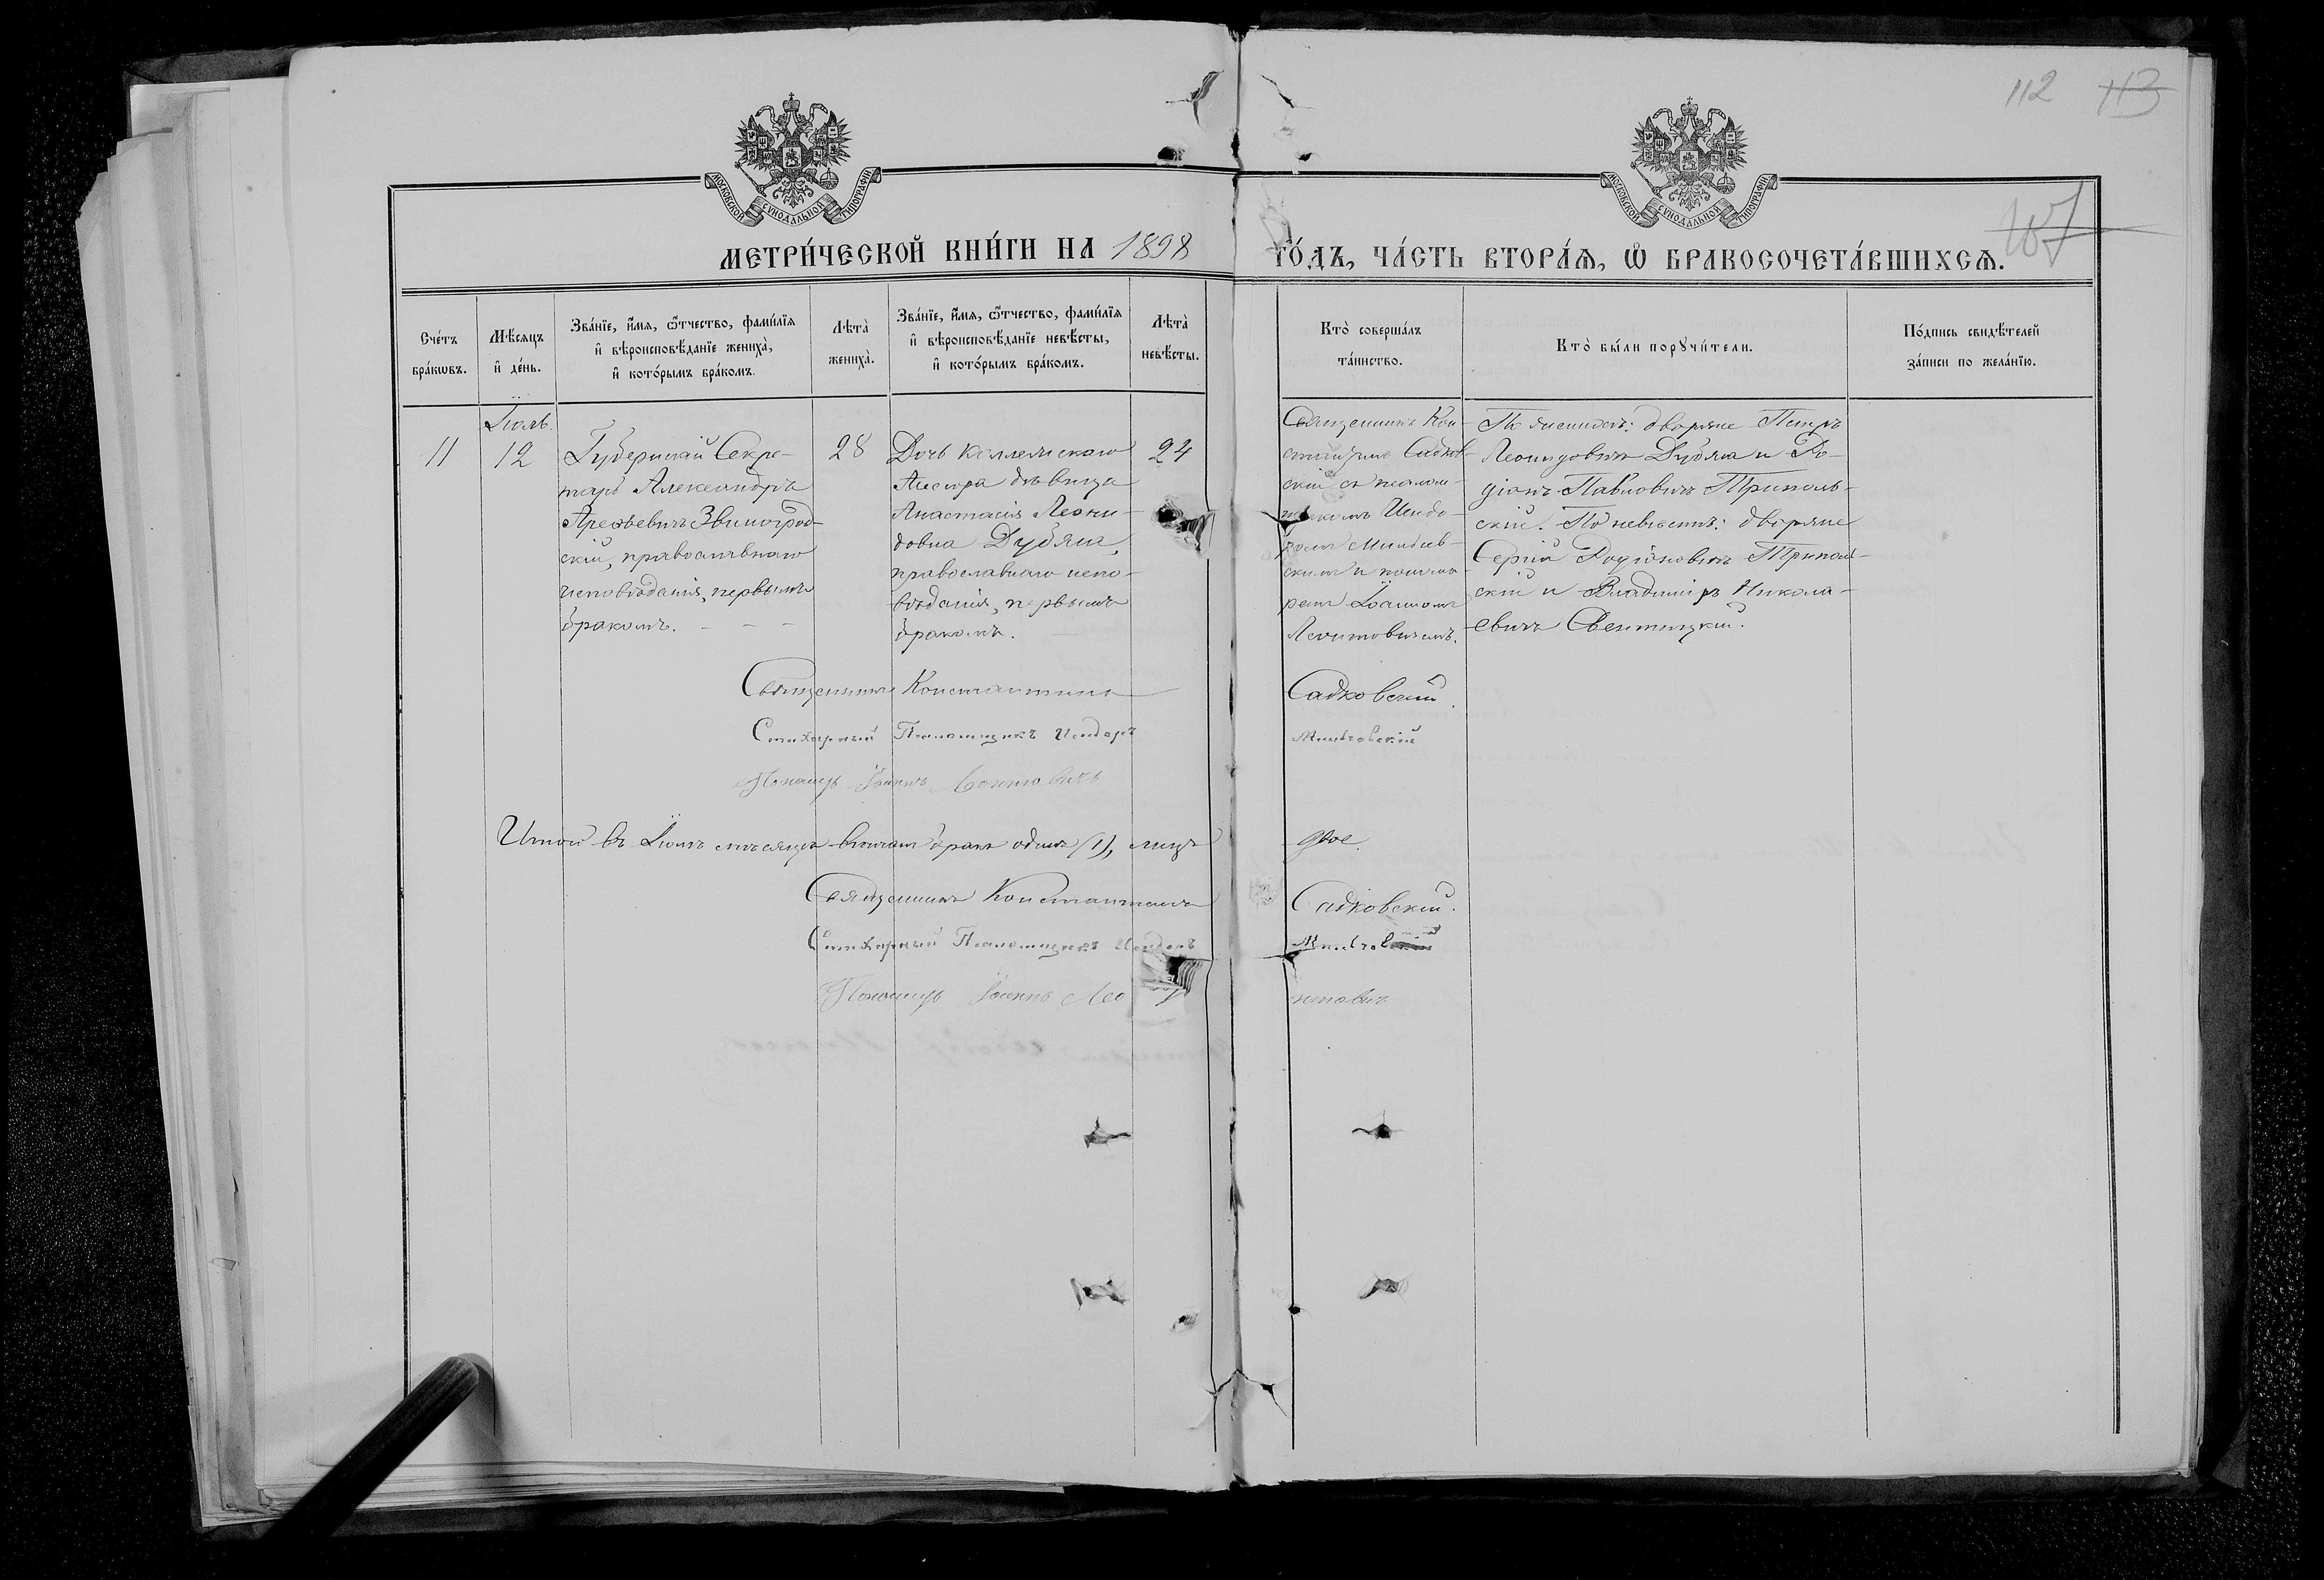 112 113
МОСКОВСКОЙ СУНОДАЛЬНОЙ ТИПОГРАФІИ
МОСКОВСКОЙ СУНОДАЛЬНОЙ ТИПОГРАФІИ
107
МЕТРИ́ЧЕСКОЙ КНИ́ГИ НА 1898 ГО́ДЪ, ЧА́СТЬ ВТОРА́Ѧ, Ѡ҆ БРАКОСОЧЕТА́ВШИХСѦ.
Сче́тъ
бра́кѡвъ.
Мѣ́сѧцъ
и҆ де́нь.
Зва́нїе, и҆́мѧ, ѻ҆́тчество, фами́лїѧ
и҆ вѣроисповѣ́данїе жениха̀,
и҆ кото́рымъ бра́комъ.
Лѣта̀
жениха̀.
Зва́нїе, и҆́мѧ, ѻ҆́тчество, фами́лїѧ
и҆ вѣроисповѣ́данїе невѣ́сты,
и҆ кото́рымъ бра́комъ.
Лѣта̀
невѣ́сты.
Кто̀ соверша́лъ
та́инство.
Кто̀ бы́ли порꙋчи́тели.
По́дпись свидѣ́телей
за́писи по жела́нїю.
11
Іюль.
12
Губернскій Секре-
тарь Александръ
Арсѣевичъ Звиногрод-
скій, православнаго
исповѣданія, первымъ
бракомъ. - - -
28
Дочь Коллежскаго
Ассесора дѣвица
Анастасія Леони-
довна Дубяга,
православнаго испо-
вѣданія, первымъ
бракомъ.
24
Священникъ Кон-
стантинъ Садков-
скій съ псалом-
щикомъ Исидо-
ромъ
скимъ и понома-
ремъ Іоанномъ
Леонтовичемъ.
По женихѣ: дворяне Петръ
Леонидовичъ Дубяга и Ро-
діонъ Павловичъ Триполь-
скій. По невѣстѣ: дворяне
Сергій Родіоновичъ Триполь-
скій и Владиміръ Никола-
евичъ Свентицкій.
Священникъ Константинъ Садковскій.
Стихарный Псаломщикъ Исидоръ
Пономарь Іоаннъ Леонтовичъ
Итого въ Іюлѣ мѣсяцѣ вѣнчанъ бракъ одинъ (1), лицъ двое.
Священникъ Константинъ Садковскій.
Стихарный Псаломщикъ Исидоръ
Пономарь Іоаннъ Леонтовичъ